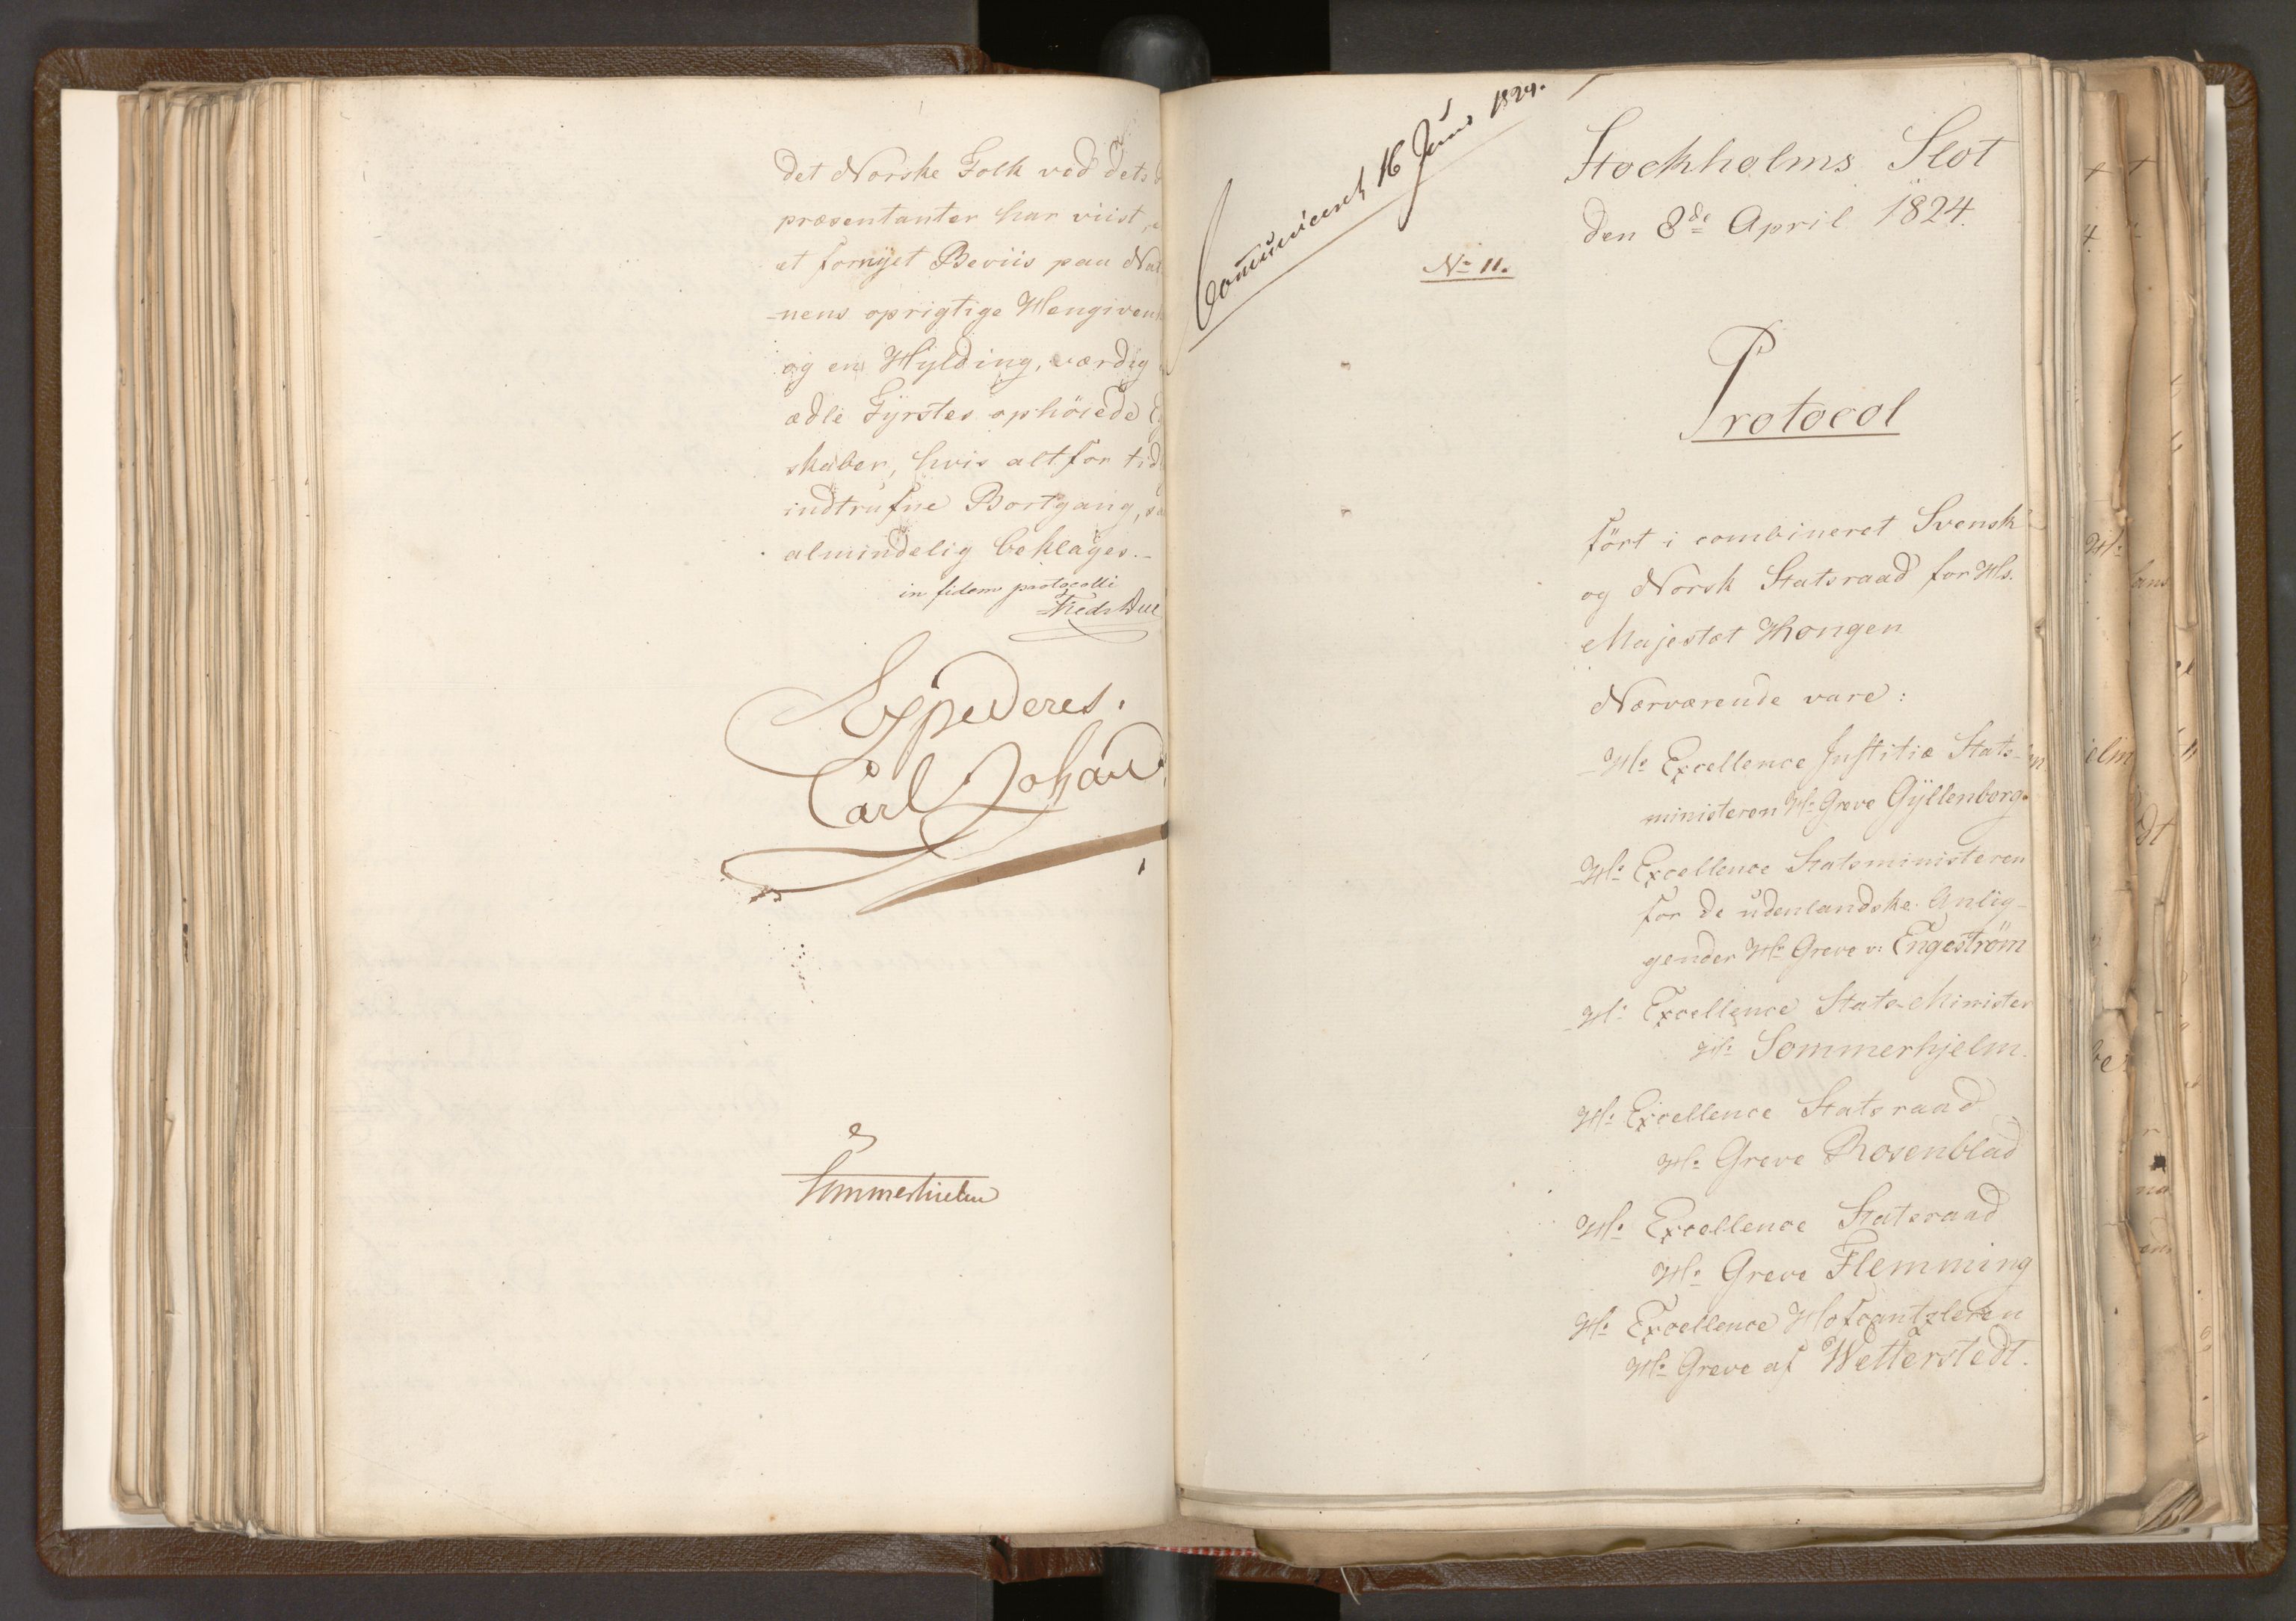 det Norske Folk ved dets
præsentanter har viist,
et fornyet Beviis paa Nat
-nens oprigtige Hengiven
og en Hylding, værdig
ædle Fyrstes ophöiede
skaber, hvis altfor tid
indtrufne Bortgang,
almindelig beklages.-
in fidem protocolli
Fredr Due
Expederes.
Carl Johan
Sommerhielm
Communiceret 16 Juni 1824.
Stockholms Slot
den 8de April 1824.
No 11.
Protocol
fört i combineret Svensk
og Norsk Statsraad for Hs.
Majestæt Kongen
Nærværende vare:
Hs Excellence Justitiæ Stats-
ministeren Hr Greve Gyllenborg.
Hs Excellence Statsministeren
for de udenlandske Anlig-
gender Hr Greve v: Engeström
Hs Excellence Stats-Minister
Hr Sommerhjelm.
Hs Excellence Statsraad
Hr Greve Rosenblad
Hs Excellence Statsraad
Hr Greve Flemming
Hs Excellence Hofcantzleren
Hr Greve af Wetterstedt.